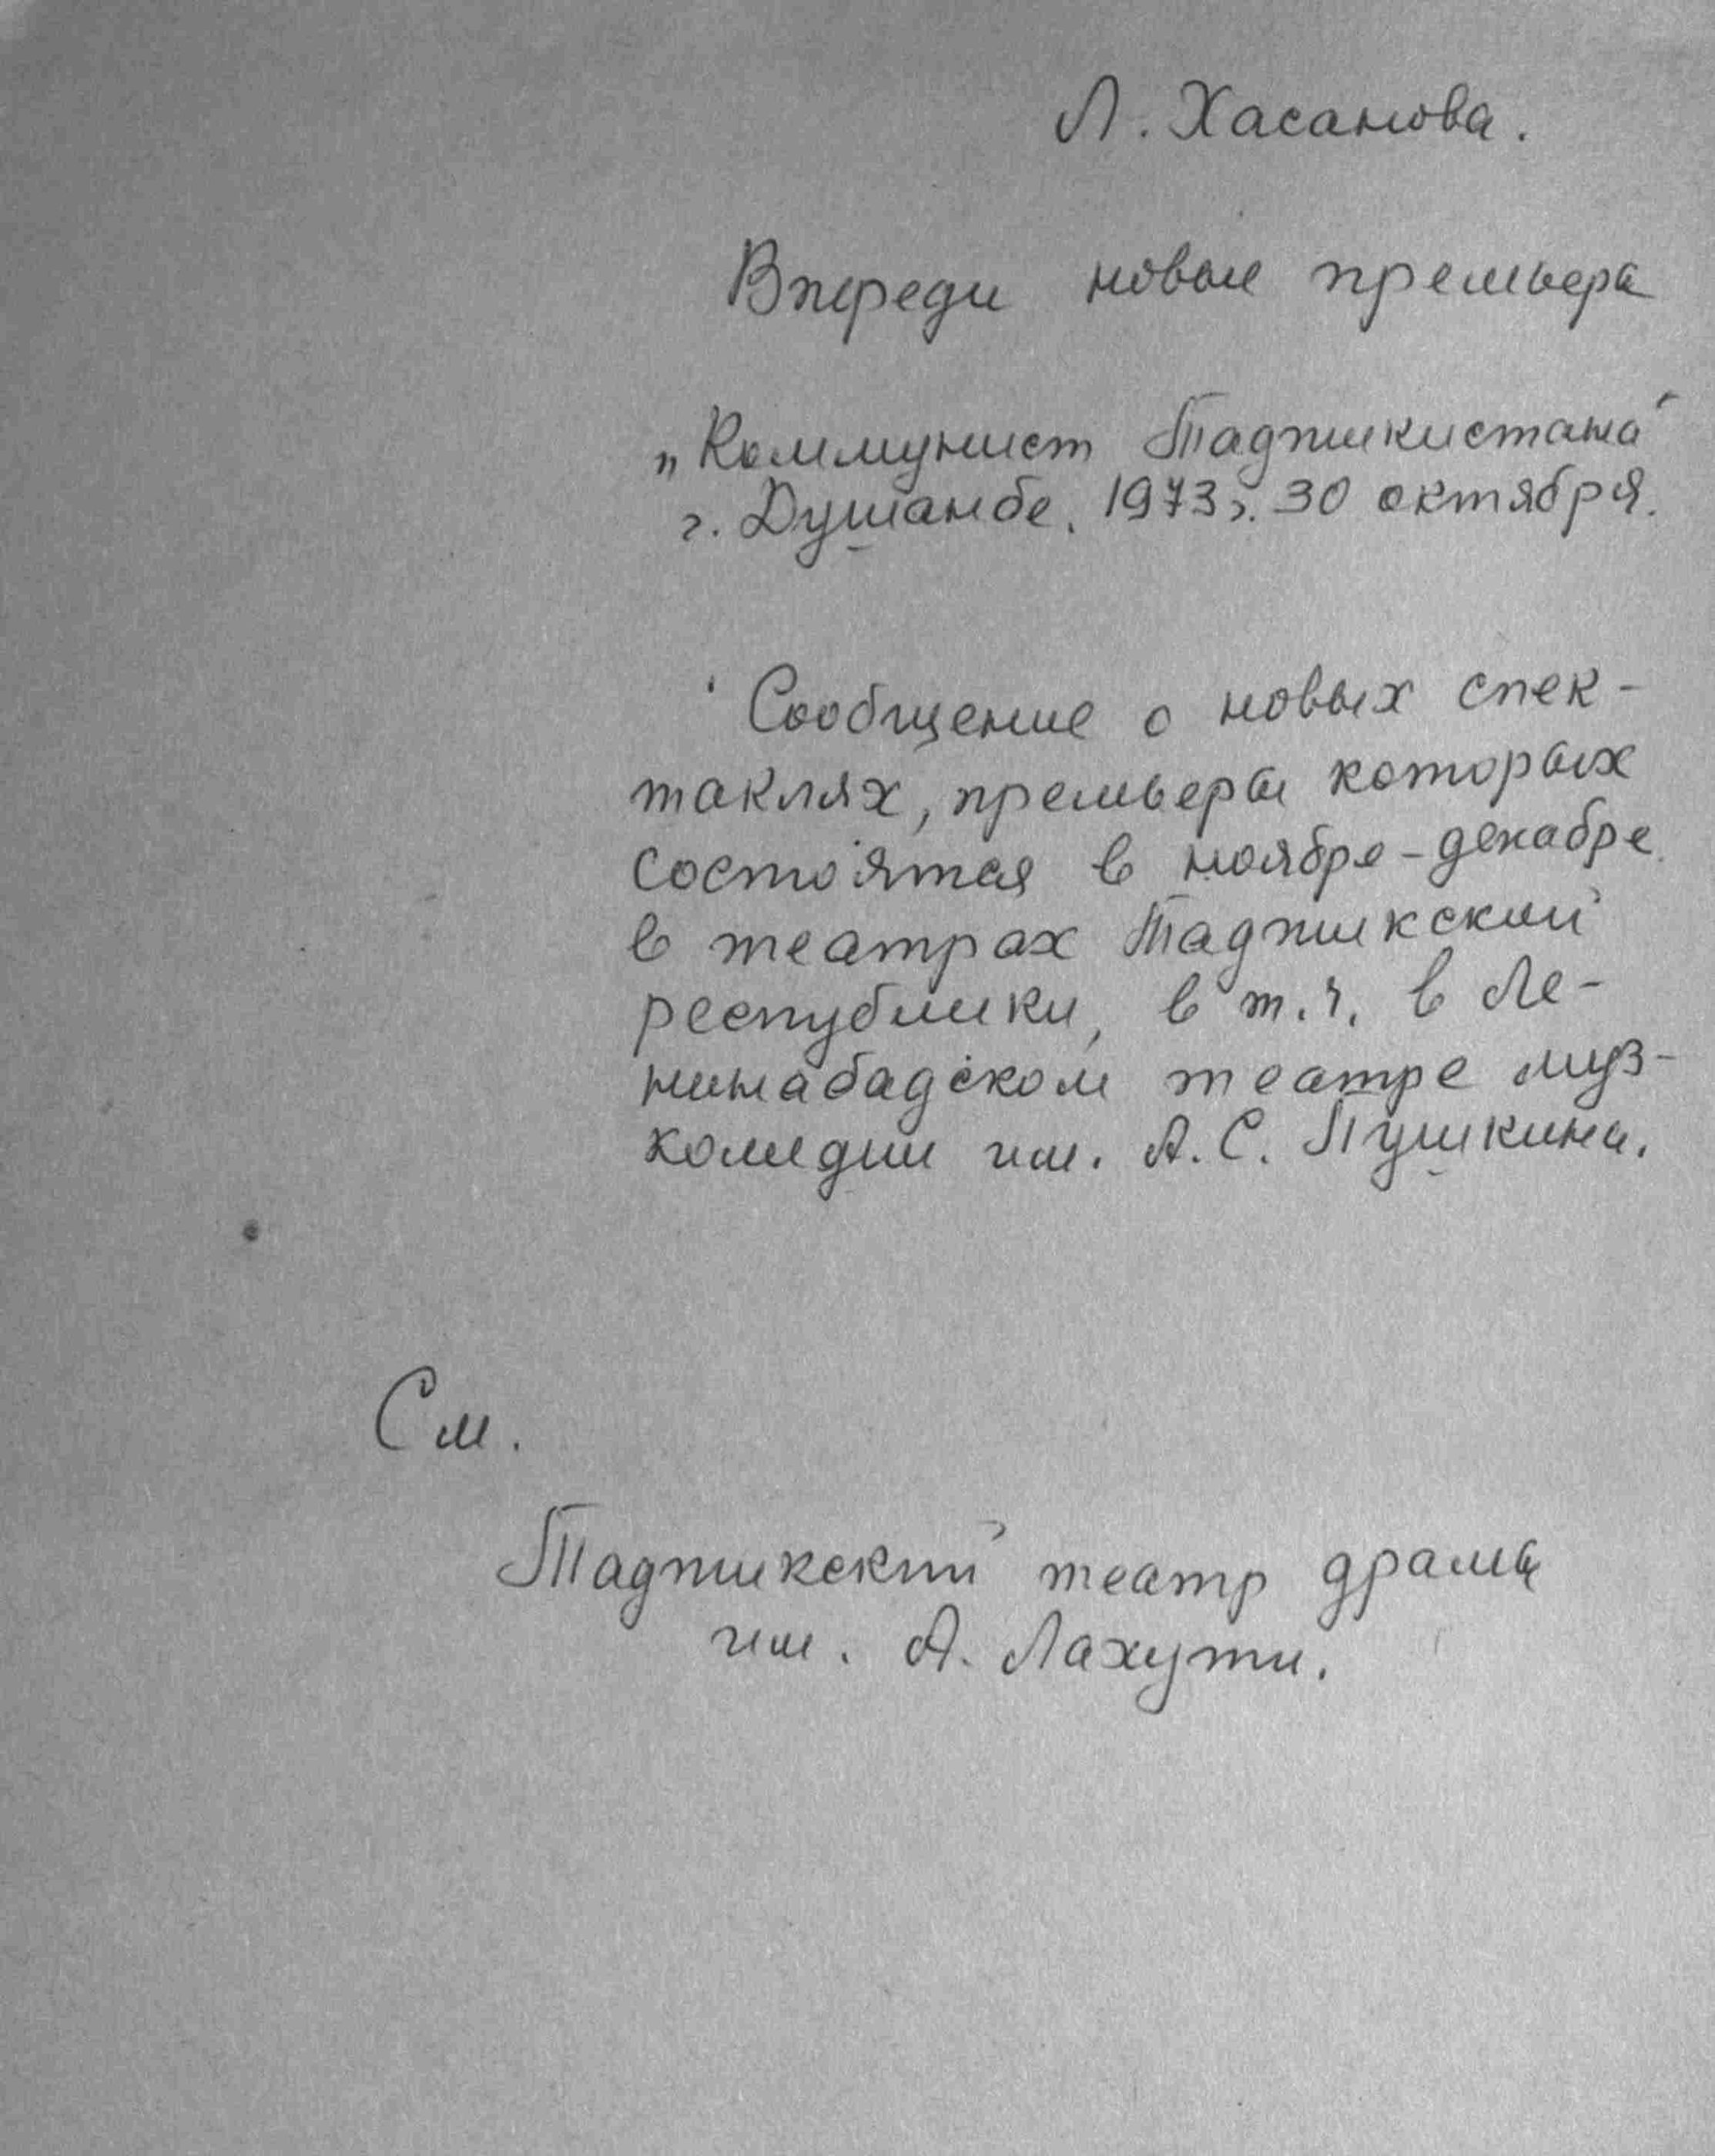 Л. Хасанова.
Впереди новые премьеры
„Коммунист Таджикистана"
г. Душанбе. 1973г. 30 октября.
Сообщение о новых спек-
таклях, премьеры которых
состоятся в ноябре-декабре
в театрах Таджикской
республики, в т.ч. в Ле-
нинабадском театре муз-
комедии им. А.С. Пушкина.
См.
Таджикский театр драмы
им. А. Лахути.